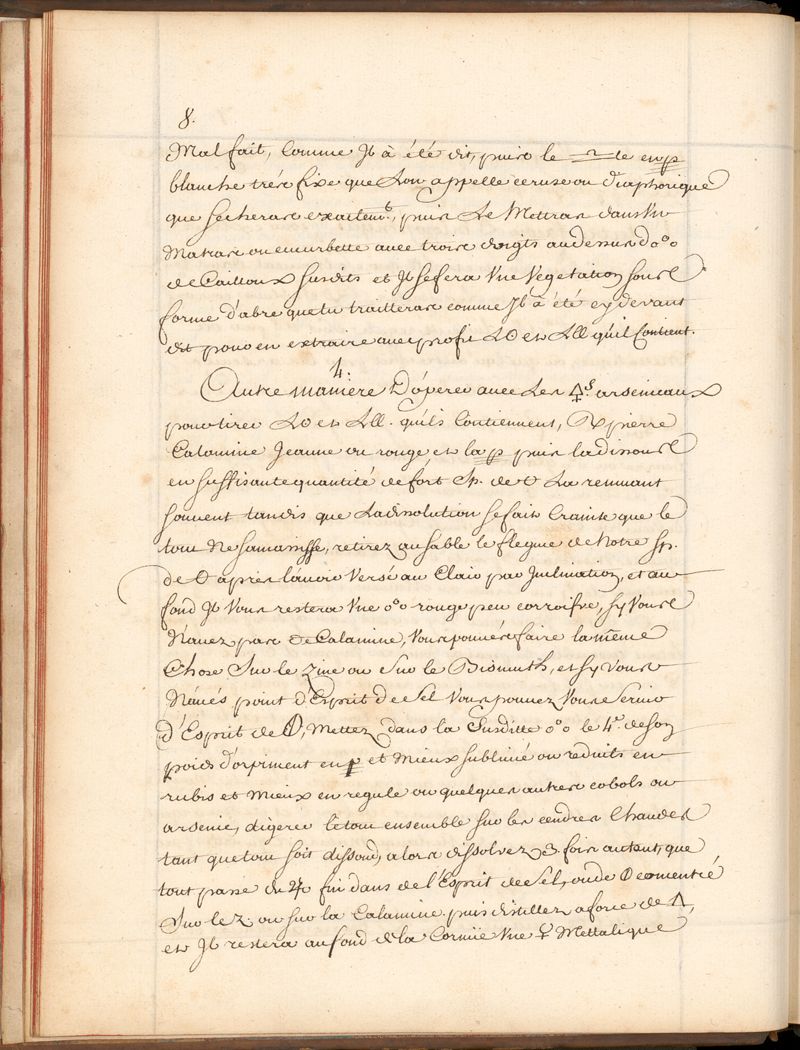 8.
Mal fait, Comme Jl à été dit, puis le de en
blanche trés fixe que Lon appelle ceruse ou diaphorique
que secheras exactemt., puis Le Mettras dans Vn
Matras ou cucurbette avec trois doigts au dessus d'o°o
de Cailloux susdits et Jl se fera Vne Vegetation sous
forme d'abre que tu traitteras comme Jl à été cy devant
dit pour en extraire avec profit Lo et LLL qu'il Contient.
4.
Autre maniere D'óperer avec Les 🜍s. arsenicaux
pour tirer Lo et LLL. qu'ils Contiennent, ℞ pierre
Calamine Jeaune ou rouge et la puis la dissous
en suffisante quantité de fort Sp. de La remuant
souvent tandis que La dissolution se fait Crainte que le
tout Ne samasisse, retirez au sable le flegme de Notre sp.
de après l'avoir Versé au Clair par Inclination, et au
fond Jl Vous restera Vne o°o rouge peu corrosive, sy Vous
N'avez pas de Calamine, Vous pouvés faire la même
Chose Sur le Zinc ou Sur le Bismuth, et sy Vous
N'avés point d'Esprit de Sel Vous pouvez Vous Servir
d'Esprit de , Mettez dans la Susditte o°o le 4e. de son
poids d'orpiment en et Mieux sublimé ou reduits en
rubis et Mieux en regule ou quelques autres cobols ou
arsenic, digerer le tout ensemble sur les cendres Chaudes
tant que tout soit dissoud, alors dissolvez 3. fois autant, que
tout passé du fin dans de l'Esprit de Sel, oude cementié
Sur le Z. ou sur la Calamine. puis distillez a force de △,
et Jl restera au fond de la Cornüe Vne Mettalique